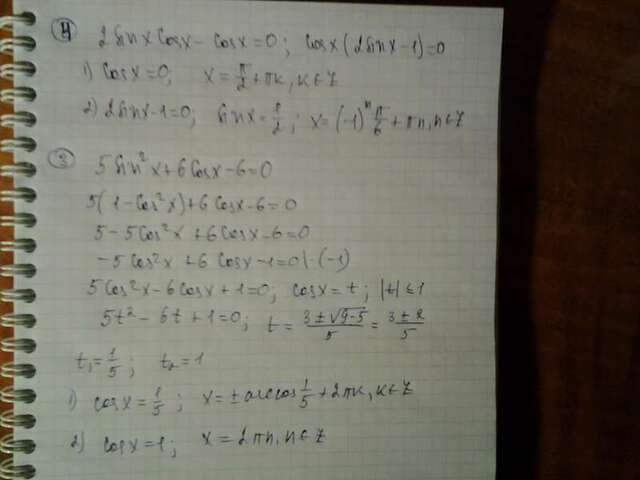 ④ 2sinx cosx - cosx = 0; cosx(2sinx - 1) = 0
1) cosx = 0; x = π/2 + πk, k∈Z
2) 2sinx - 1 = 0, sinx = 1/2; x = (-1)ⁿ π/6 + πn, n∈Z
③ 5sin²x + 6cosx - 6 = 0
5(1 - cos²x) + 6cosx - 6 = 0
5 - 5cos²x + 6cosx - 6 = 0
-5cos²x + 6cosx - 1 = 0 | ·(-1)
5cos²x - 6cosx + 1 = 0; cosx = t; |t| ≤ 1
5t² - 6t + 1 = 0; t = (3 ± √(9-5))/5 = (3 ± 2)/5
t₁ = 1/5; t₂ = 1
1) cosx = 1/5; x = ± arccos 1/5 + 2πk, k∈Z
2) cosx = 1; x = 2πn, n∈Z